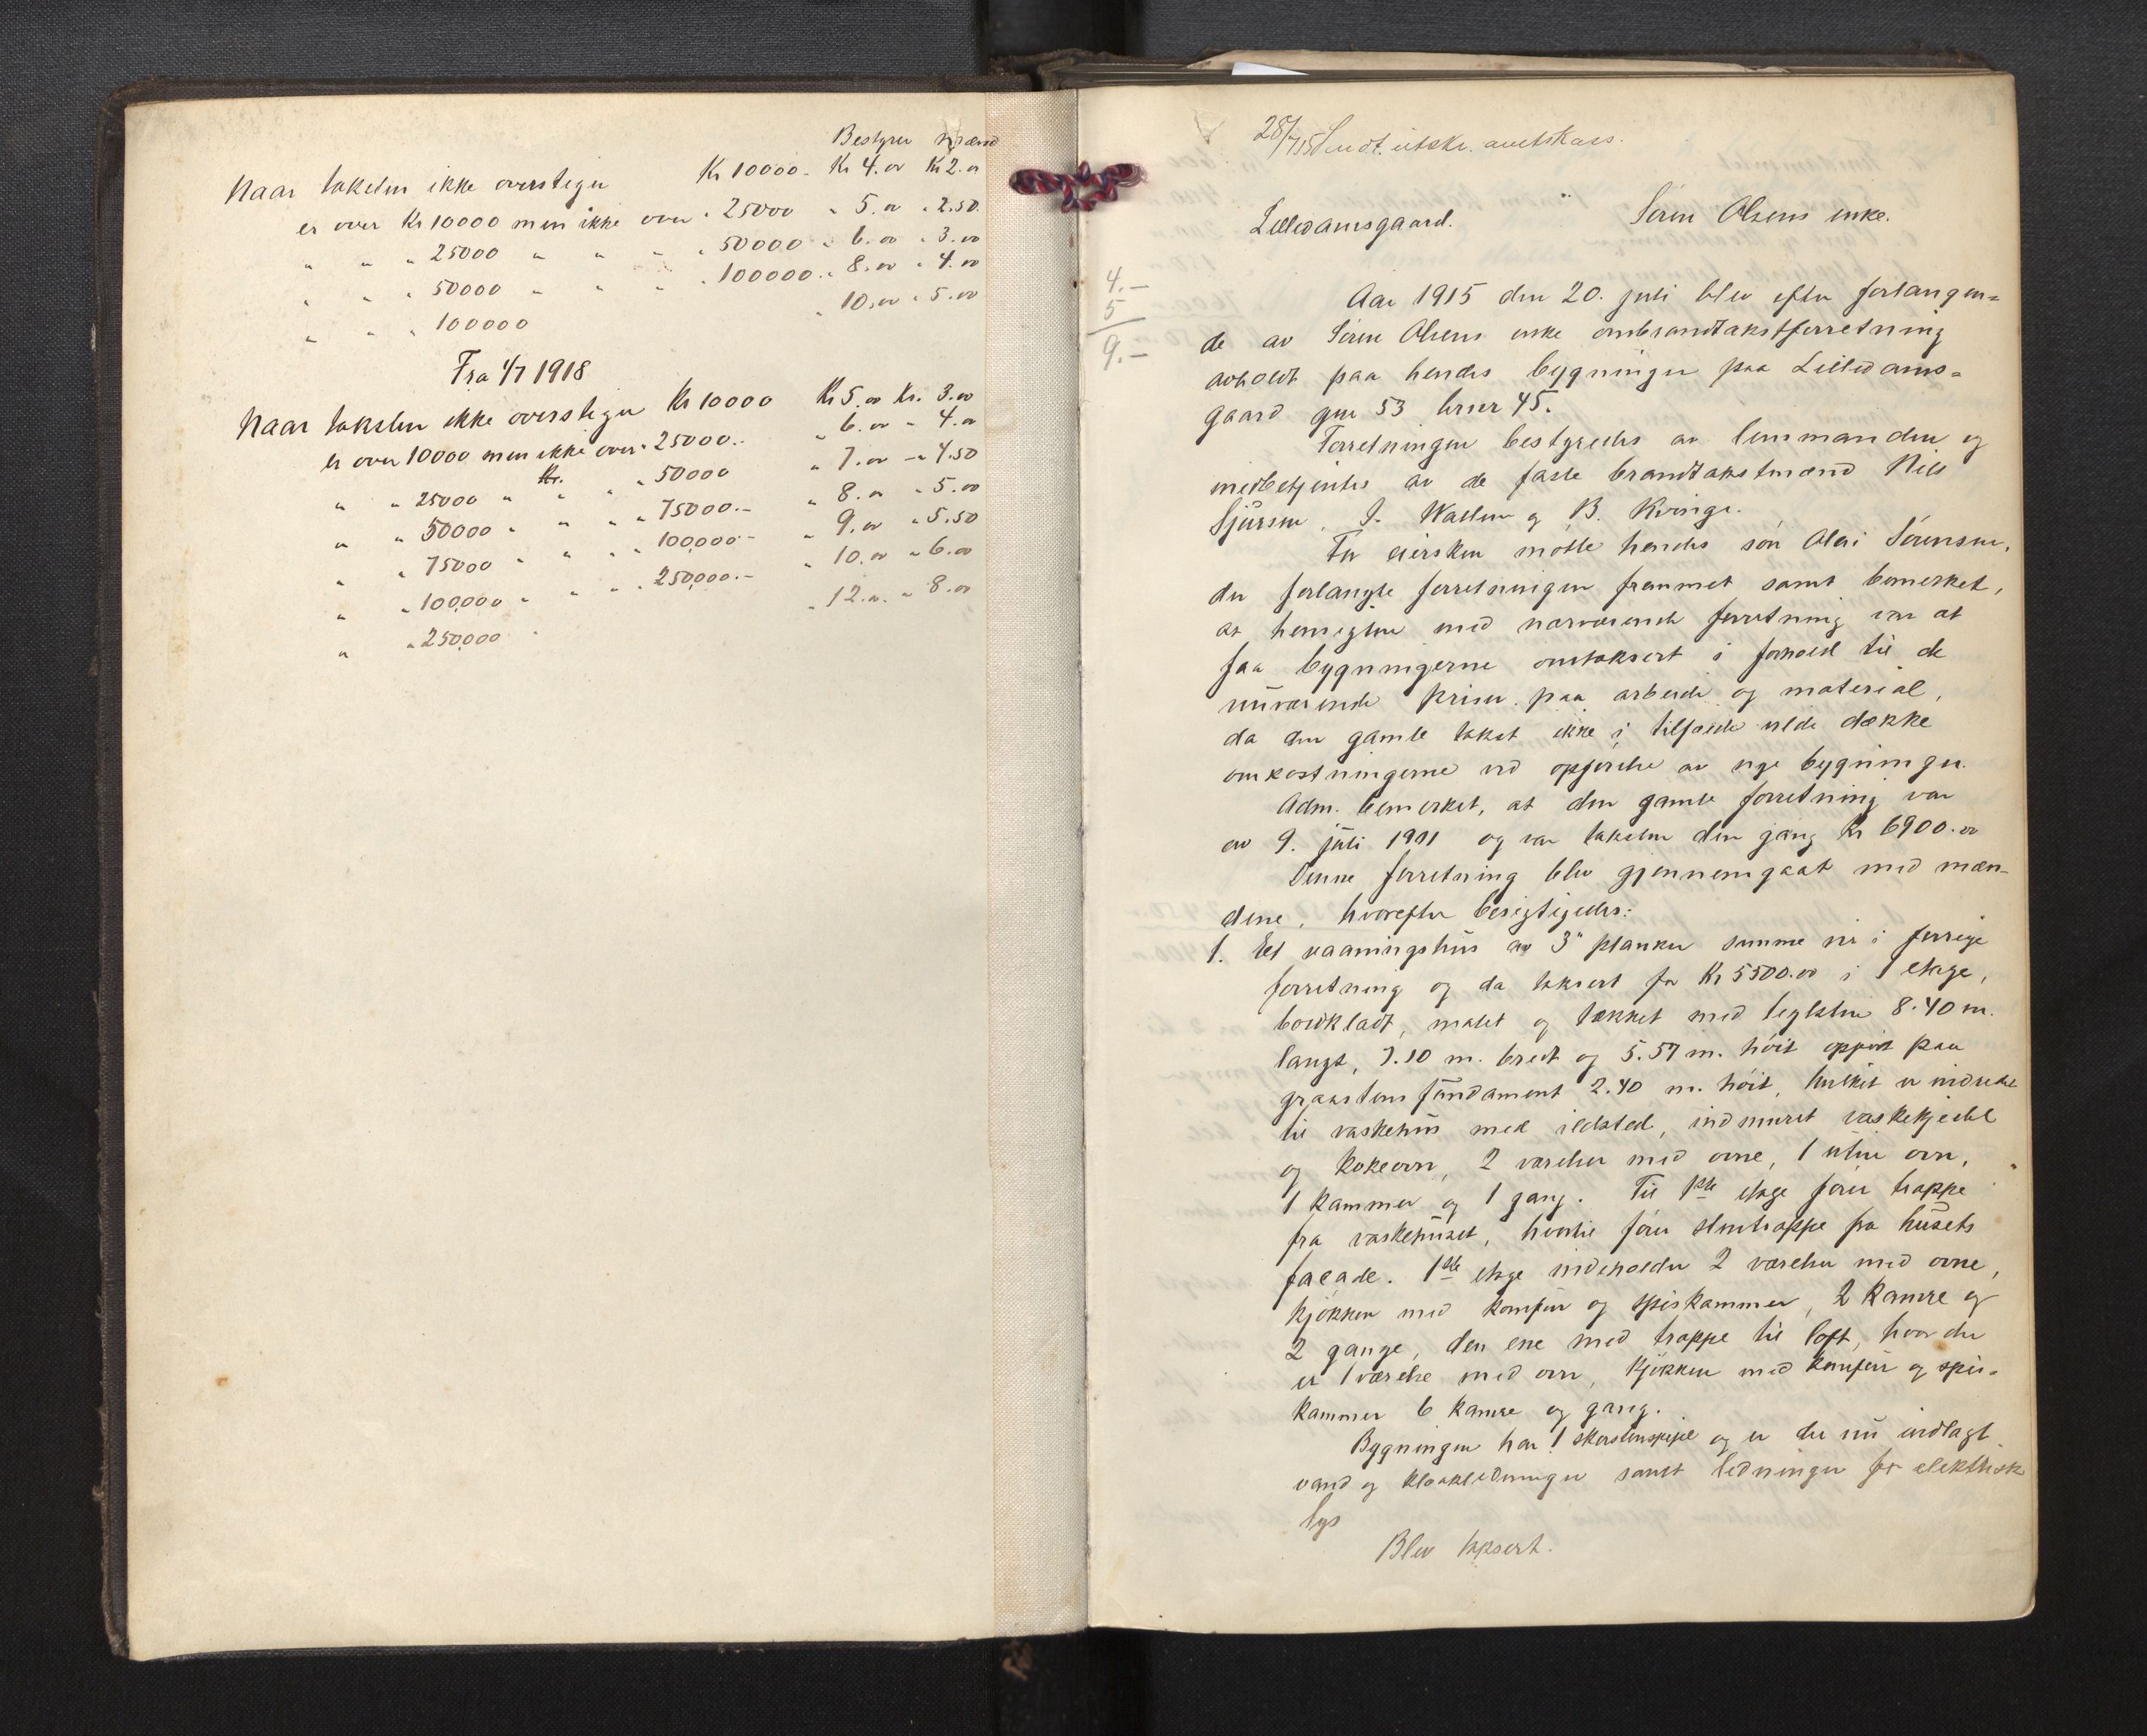 Bestyrer Mænd
Naar taksten ikke overstiger Kr 10000 - Kr 4.00 Kr 2.00
er over Kr 10000 men ikke over " 25000 " 5.00 " 2.50.
" " " 25000 " " " " 50000 " 6.00 " 3.00
" " " 50000 " " " " 100000 " 8.00 " 4.00
" " " 100000 " 10.00 " 5.00
Fra 1/7 1918
Naar taksten ikke overstiger Kr 10000 Kr 5.00 Kr. 3.00
er over 10000 men ikke over " 25000.- " 6.00 " 4.00
" " 25000 " " " " 50000 " 7.00 " 4.50
" " 50000 " " " " 75000.- " 8.00 " 5.00
" " 75000 " " " " 100,000.- " 9.00 " 5.50
" " 100,000 " " " " 250,000.- " 10.00 " 6.00
" " 250,000 " 12.00 " 8.00
28/7 15 Sendt utskr. amtskass.
Lilledamsgaard. Sören Olsens enke.
4.-
5
9.-
Aar 1915 den 20. juli blev efter forlangen=
de av Sören Olsens enke ombrandtakstforretning
avholdt paa hendes bygninger paa Lilledams=
gaard gnr 53 brnr 45.
Forretningen bestyredes av lensmanden og
medbetjentes av de faste brandtakstmænd Nils
Sjursen, J. Wallem og B. Kvinge.
For eiersken mötte hendes sön Olai Sörensen,
der forlangte forretningen fremmet samt bemerket,
at hensigten med nærværende forretning var at
faa bygningerne omtaksert i forhold til de
nuværende priser paa arbeide og material,
da den gamle takst ikke i tilfælde vilde dække
omkostningerne ved opförelse av nye bygninger.
Adm. bemerket, at den gamle forretning var
av 9. juli 1901 og var taksten den gang Kr 6900.00
Denne forretning blev gjennemgaat med mæn-
dene, hvorefter besigtigedes:
1. Et vaaningshus av 3" planker samme nr i forrige
forretning og da taksert for Kr 5500.00 i 1 etage,
bordklædt, malet og tækket med teglsten 8.40 m.
langt, 7.10 m. bredt og 5.57 m. höit opfört paa
graastens fundament 2.40 m. höit, hvilket er indredet
til vaskehus med ildsted, indmuret vaskekjedel
og kokeovn, 2 værelser med ovne, 1 uten ovn,
1 kammer og 1 gang. Til 1ste etage förer trappe
fra vaskehuset, hvortil förer stentrappe fra husets
facade. 1ste etage indeholder 2 værelser med ovne,
kjökken med komfur og spiskammer, 2 kamre og
2 gange, den ene med trappe til loft, hvor der
er 1 værelse med ovn, kjökken med komfur og spis-
kammer 6 kamre og gang.
Bygningen har 1 skorstenspipe og er der nu indlagt
vand og kloakledninger samt ledninger for elektrisk
lys
Blev taksert.